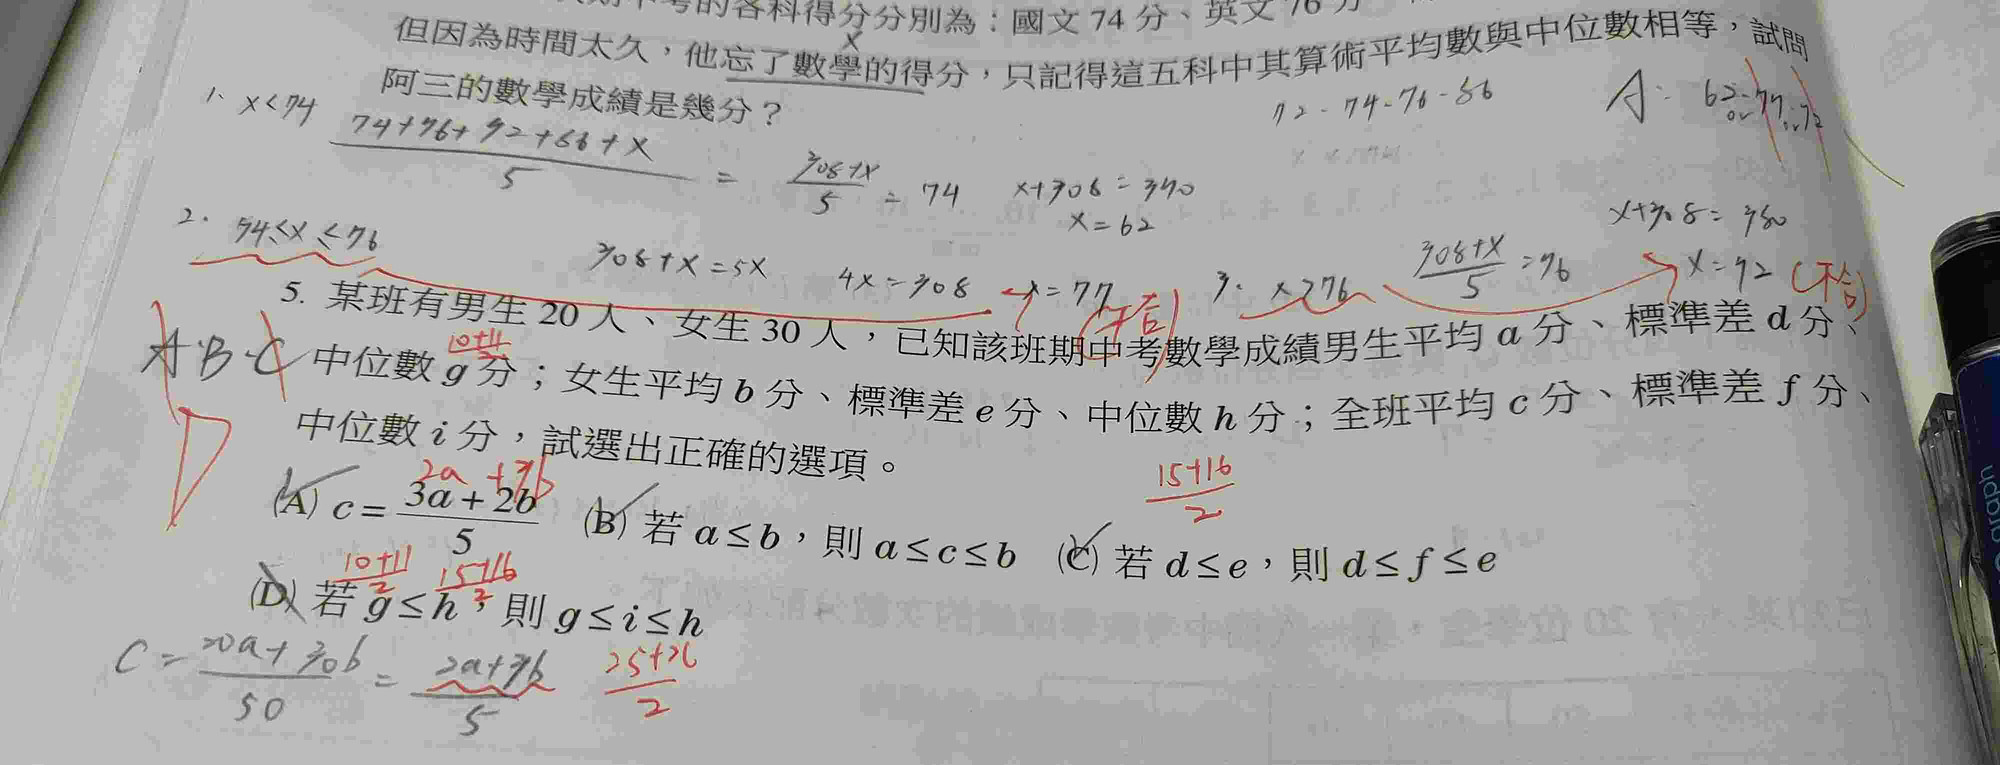 考的各科得分分別為：國文 74 分、英文 76 分
但因為時間太久，他忘了數學的得分，只記得這五科中其算術平均數與中位數相等，試問
x
阿三的數學成績是幾分？
72-74-76-86
A: 62
1. x<74
74+76+92+66+x / 5 = 308+x / 5 = 74
x+308=370
x=62
2. 74≤x≤76
308+x=5x
4x=308
x=77 (不合)
3. x>76
308+x / 5 = 76
x+308=380
x=72 (不合)
5. 某班有男生 20 人、女生 30 人，已知該班期中考數學成績男生平均 a 分、標準差 d 分、
A.B.C
10+11 / 2
中位數 g 分；女生平均 b 分、標準差 e 分、中位數 h 分；全班平均 c 分、標準差 f 分、
D
中位數 i 分，試選出正確的選項。
2a+3b
15+16 / 2
(A) c = 3a + 2b / 5 (B) 若 a ≤ b，則 a ≤ c ≤ b (C) 若 d ≤ e，則 d ≤ f ≤ e
10+11 / 2 15+16 / 2
(D) 若 g ≤ h，則 g ≤ i ≤ h
C = 20a+30b / 50 = 2a+3b / 5
25+26 / 2